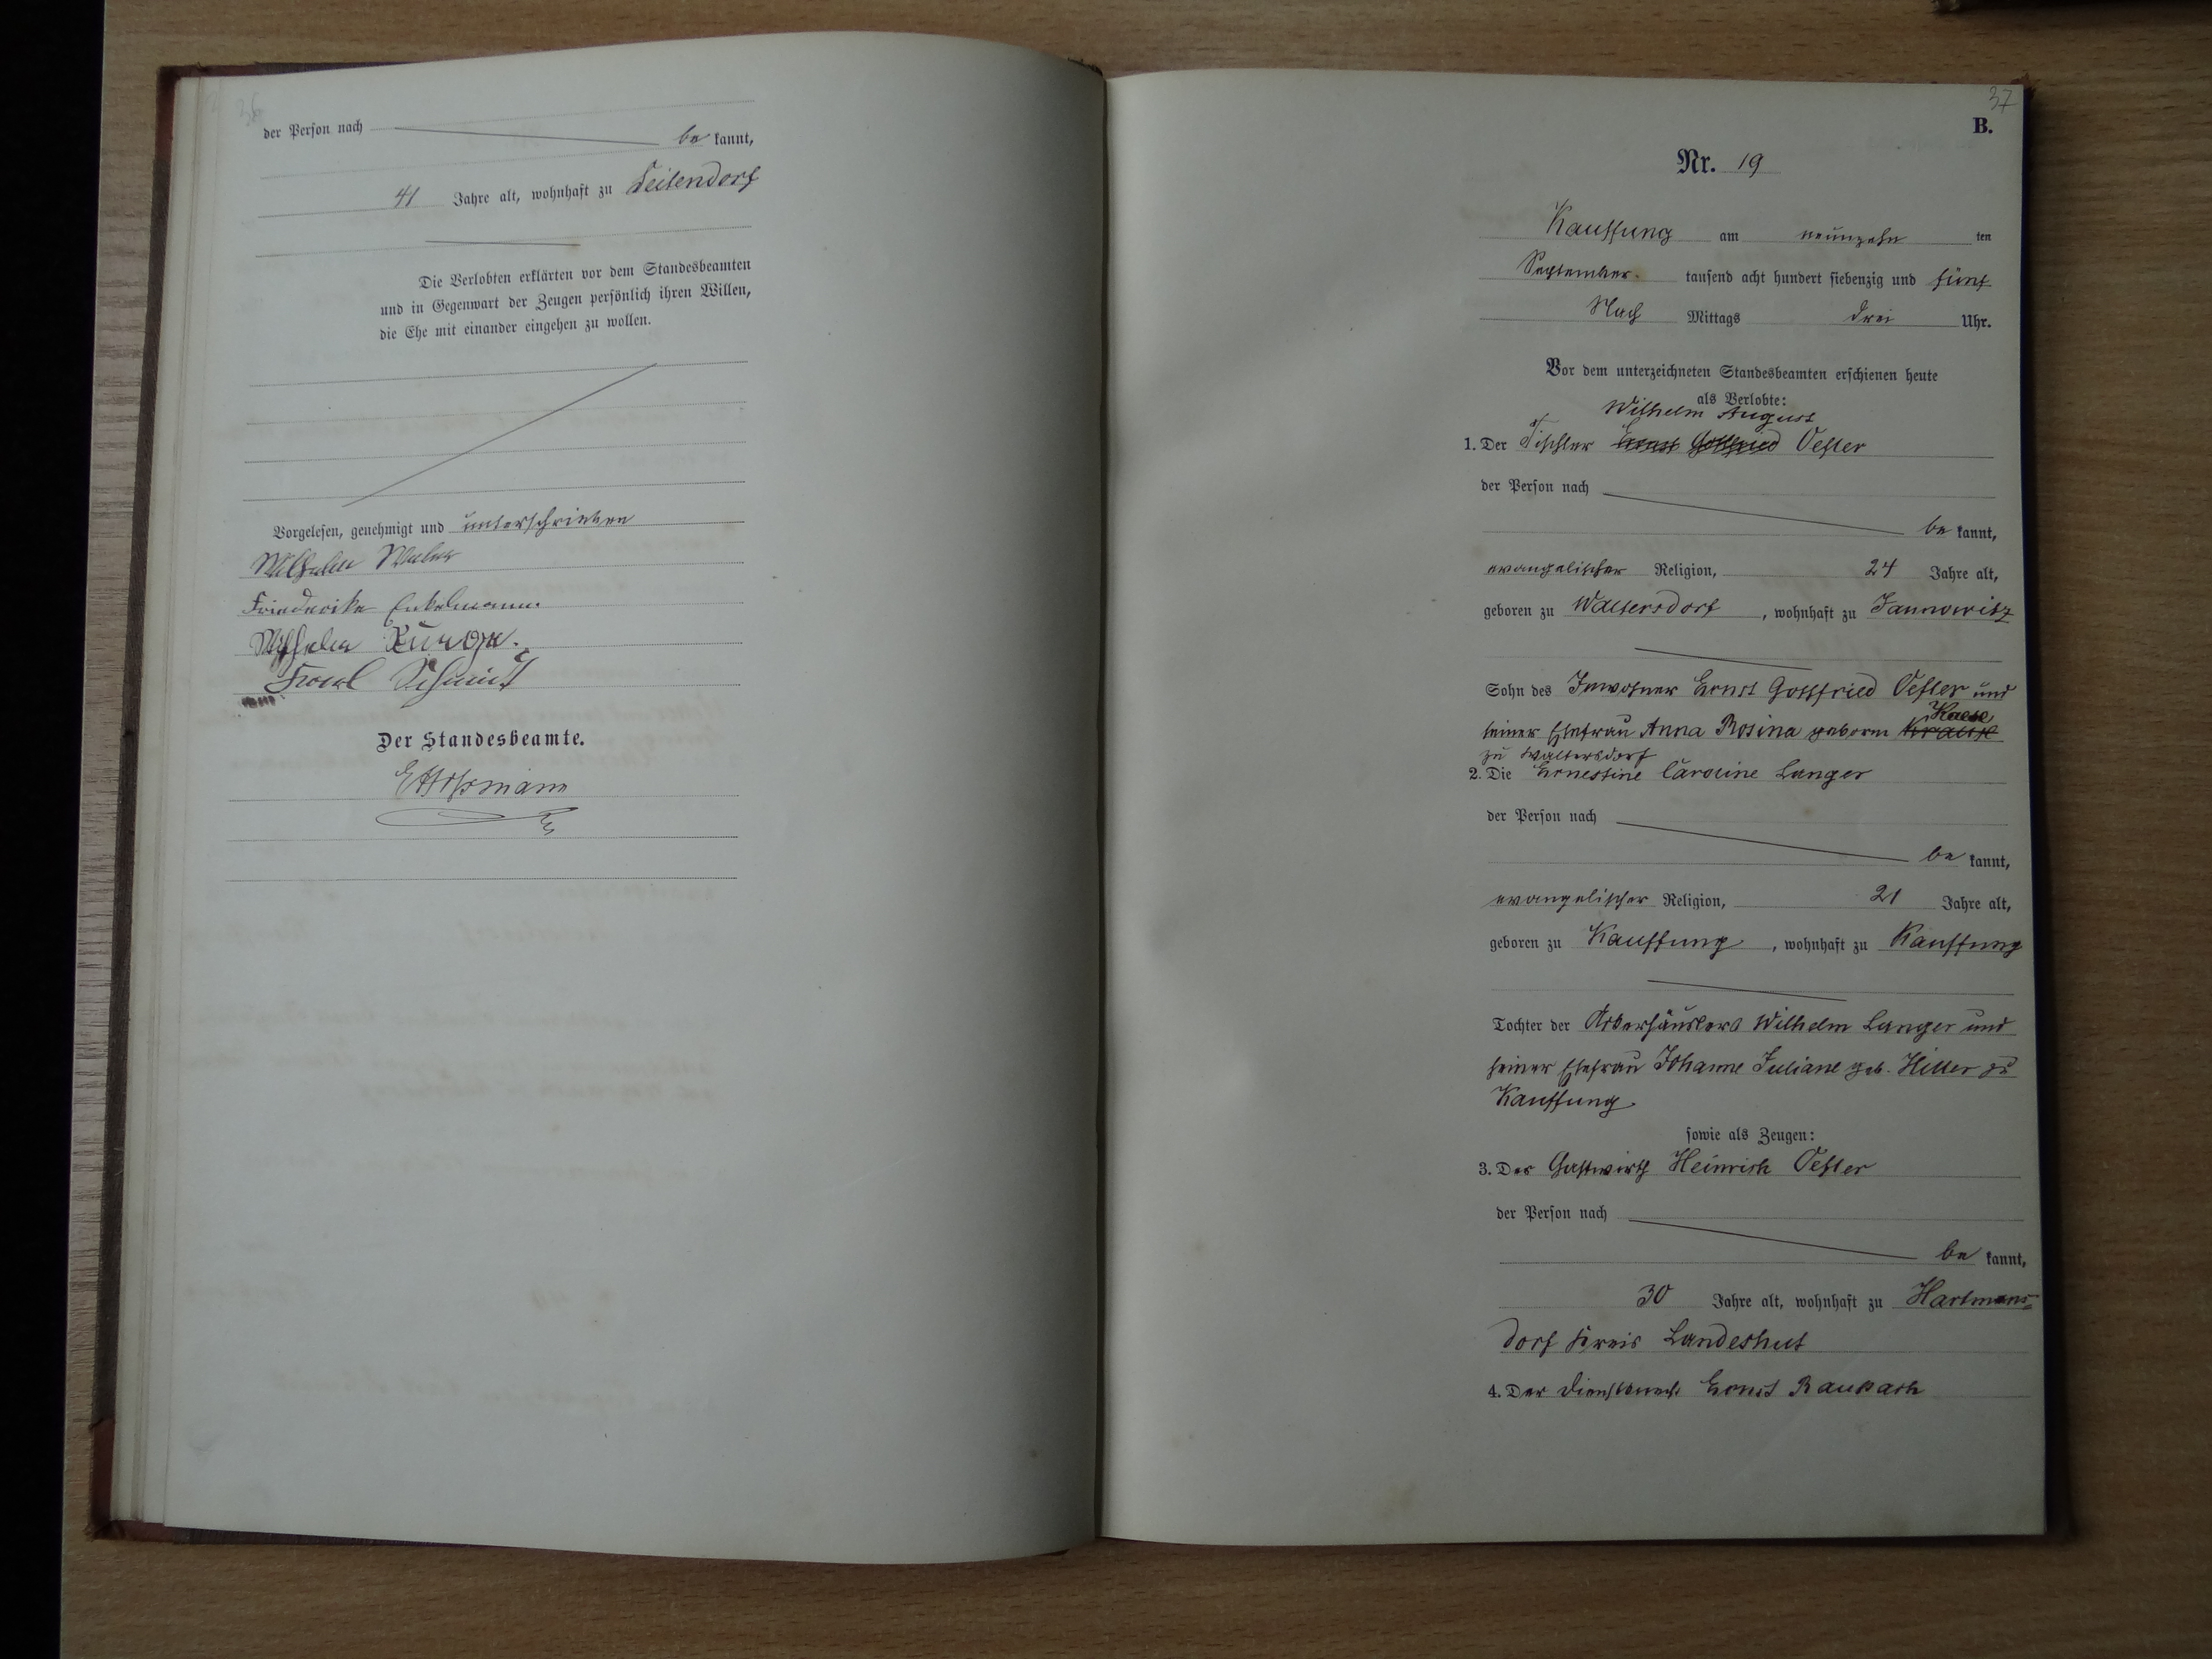 36
der Person nach be kannt,
41 Jahre alt, wohnhaft zu Seitendorf
Die Verlobten erklärten vor dem Standesbeamten
und in Gegenwart der Zeugen persönlich ihren Willen,
die Ehe mit einander eingehen zu wollen.
Vorgelesen, genehmigt und unterschrieben
Wilhelm
Friederike
Wilhelm
Karl Schmidt
Der Standesbeamte.
37
B.
Nr. 19
Kauffung am neunzehn ten
September tausend acht hundert siebenzig und fünf
Nach Mittags drei Uhr.
Vor dem unterzeichneten Standesbeamten erschienen heute
als Verlobte:
Wilhelm August
1. Der Tischler Ernst Gottfried Oesler
der Person nach
be kannt,
evangelischer Religion, 24 Jahre alt,
geboren zu Waltersdorf, wohnhaft zu Jannowitz
Sohn des Inwohner Ernst Gottfried Oesler und
Kaese
seiner Ehefrau Anna Rosina geborne Krause
zu Waltersdorf
2. Die Ernestine Caroline Langer
der Person nach
be kannt,
evangelischer Religion, 21 Jahre alt,
geboren zu Kauffung, wohnhaft zu Kauffung
Tochter der Ackerhäuslers Wilhelm Langer und
seiner Ehefrau Johanne Juliane geb. Hiller zu
Kauffung.
sowie als Zeugen:
3. Der Gastwirth Heinrich Oesler
der Person nach
be kannt,
30 Jahre alt, wohnhaft zu Hartmans=
dorf Kreis Landeshut
4. Der Dienstknecht Ernst Raupach